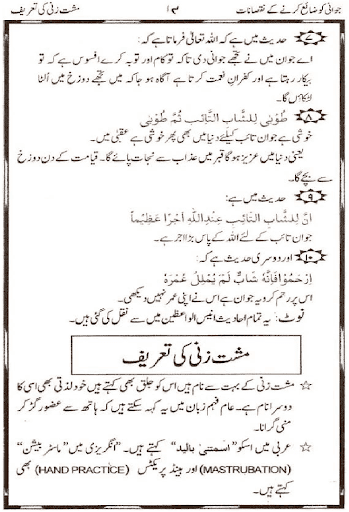 جوانی کو ضائع کرنے کے نقصانات ۱۳ مشت زنی کی تعریف
۷ حدیث میں ہے کہ اللہ تعالٰی فرماتا ہے کہ:
اے جوان میں نے تجھے جوانی دی تا کہ تو کام اور توبہ کرے افسوس ہے کہ تو
بیکار رہتا ہے اور کفرانِ نعمت کرتا ہے آگاہ ہو جا کہ میں تجھے دوزخ میں الٹا
لٹکاؤں گا۔
۸ طُوْبٰی لِلشَّابِ التَّائِبِ ثُمَّ طُوْبٰی
خوشی ہے جوان تائب کیلئے دنیا میں بھی پھر خوشی ہے عقبٰی میں۔
یعنی دنیا میں عزیز ہوگا قبر میں عذاب سے نجات پائے گا۔ قیامت کے دن دوزخ
سے بچے گا۔
۹ حدیث میں ہے:
اِنَّ لِلشَّابِ التَّائِبِ عِنْدَاللّٰهِ اَجْرًا عَظِیْماً
جوان تائب کے لئے اللہ کے پاس بڑا اجر ہے۔
۱۰ اور دوسری حدیث ہے کہ:
اِرْحَمُوْا فَاِنَّهٗ شَابٌ لَمْ یُمْلِلْ عُمَرَهٗ
اس پر رحم کرو یہ جوان ہے اس نے اپنی عمر نہیں دیکھی۔
نوٹ: یہ تمام احادیث انیس الواعظین میں سے نقل کی گئی ہیں۔
مشت زنی کی تعریف
☆ مشت زنی کے بہت سے نام ہیں اس کو جلق بھی کہتے ہیں خود لذتی بھی اسی کا
دوسرا نام ہے۔ عام فہم زبان میں یہ کہہ سکتے ہیں کہ ہاتھ سے عضو رگڑ کر
منی گرانا۔
☆ عربی میں اسکو "اسمتنیٰ بالید" کہتے ہیں۔ "انگریزی میں "ماسٹر بیشن"
(MASTRUBATION) اور ہینڈ پریکٹس (HAND PRACTICE) بھی
کہتے ہیں۔